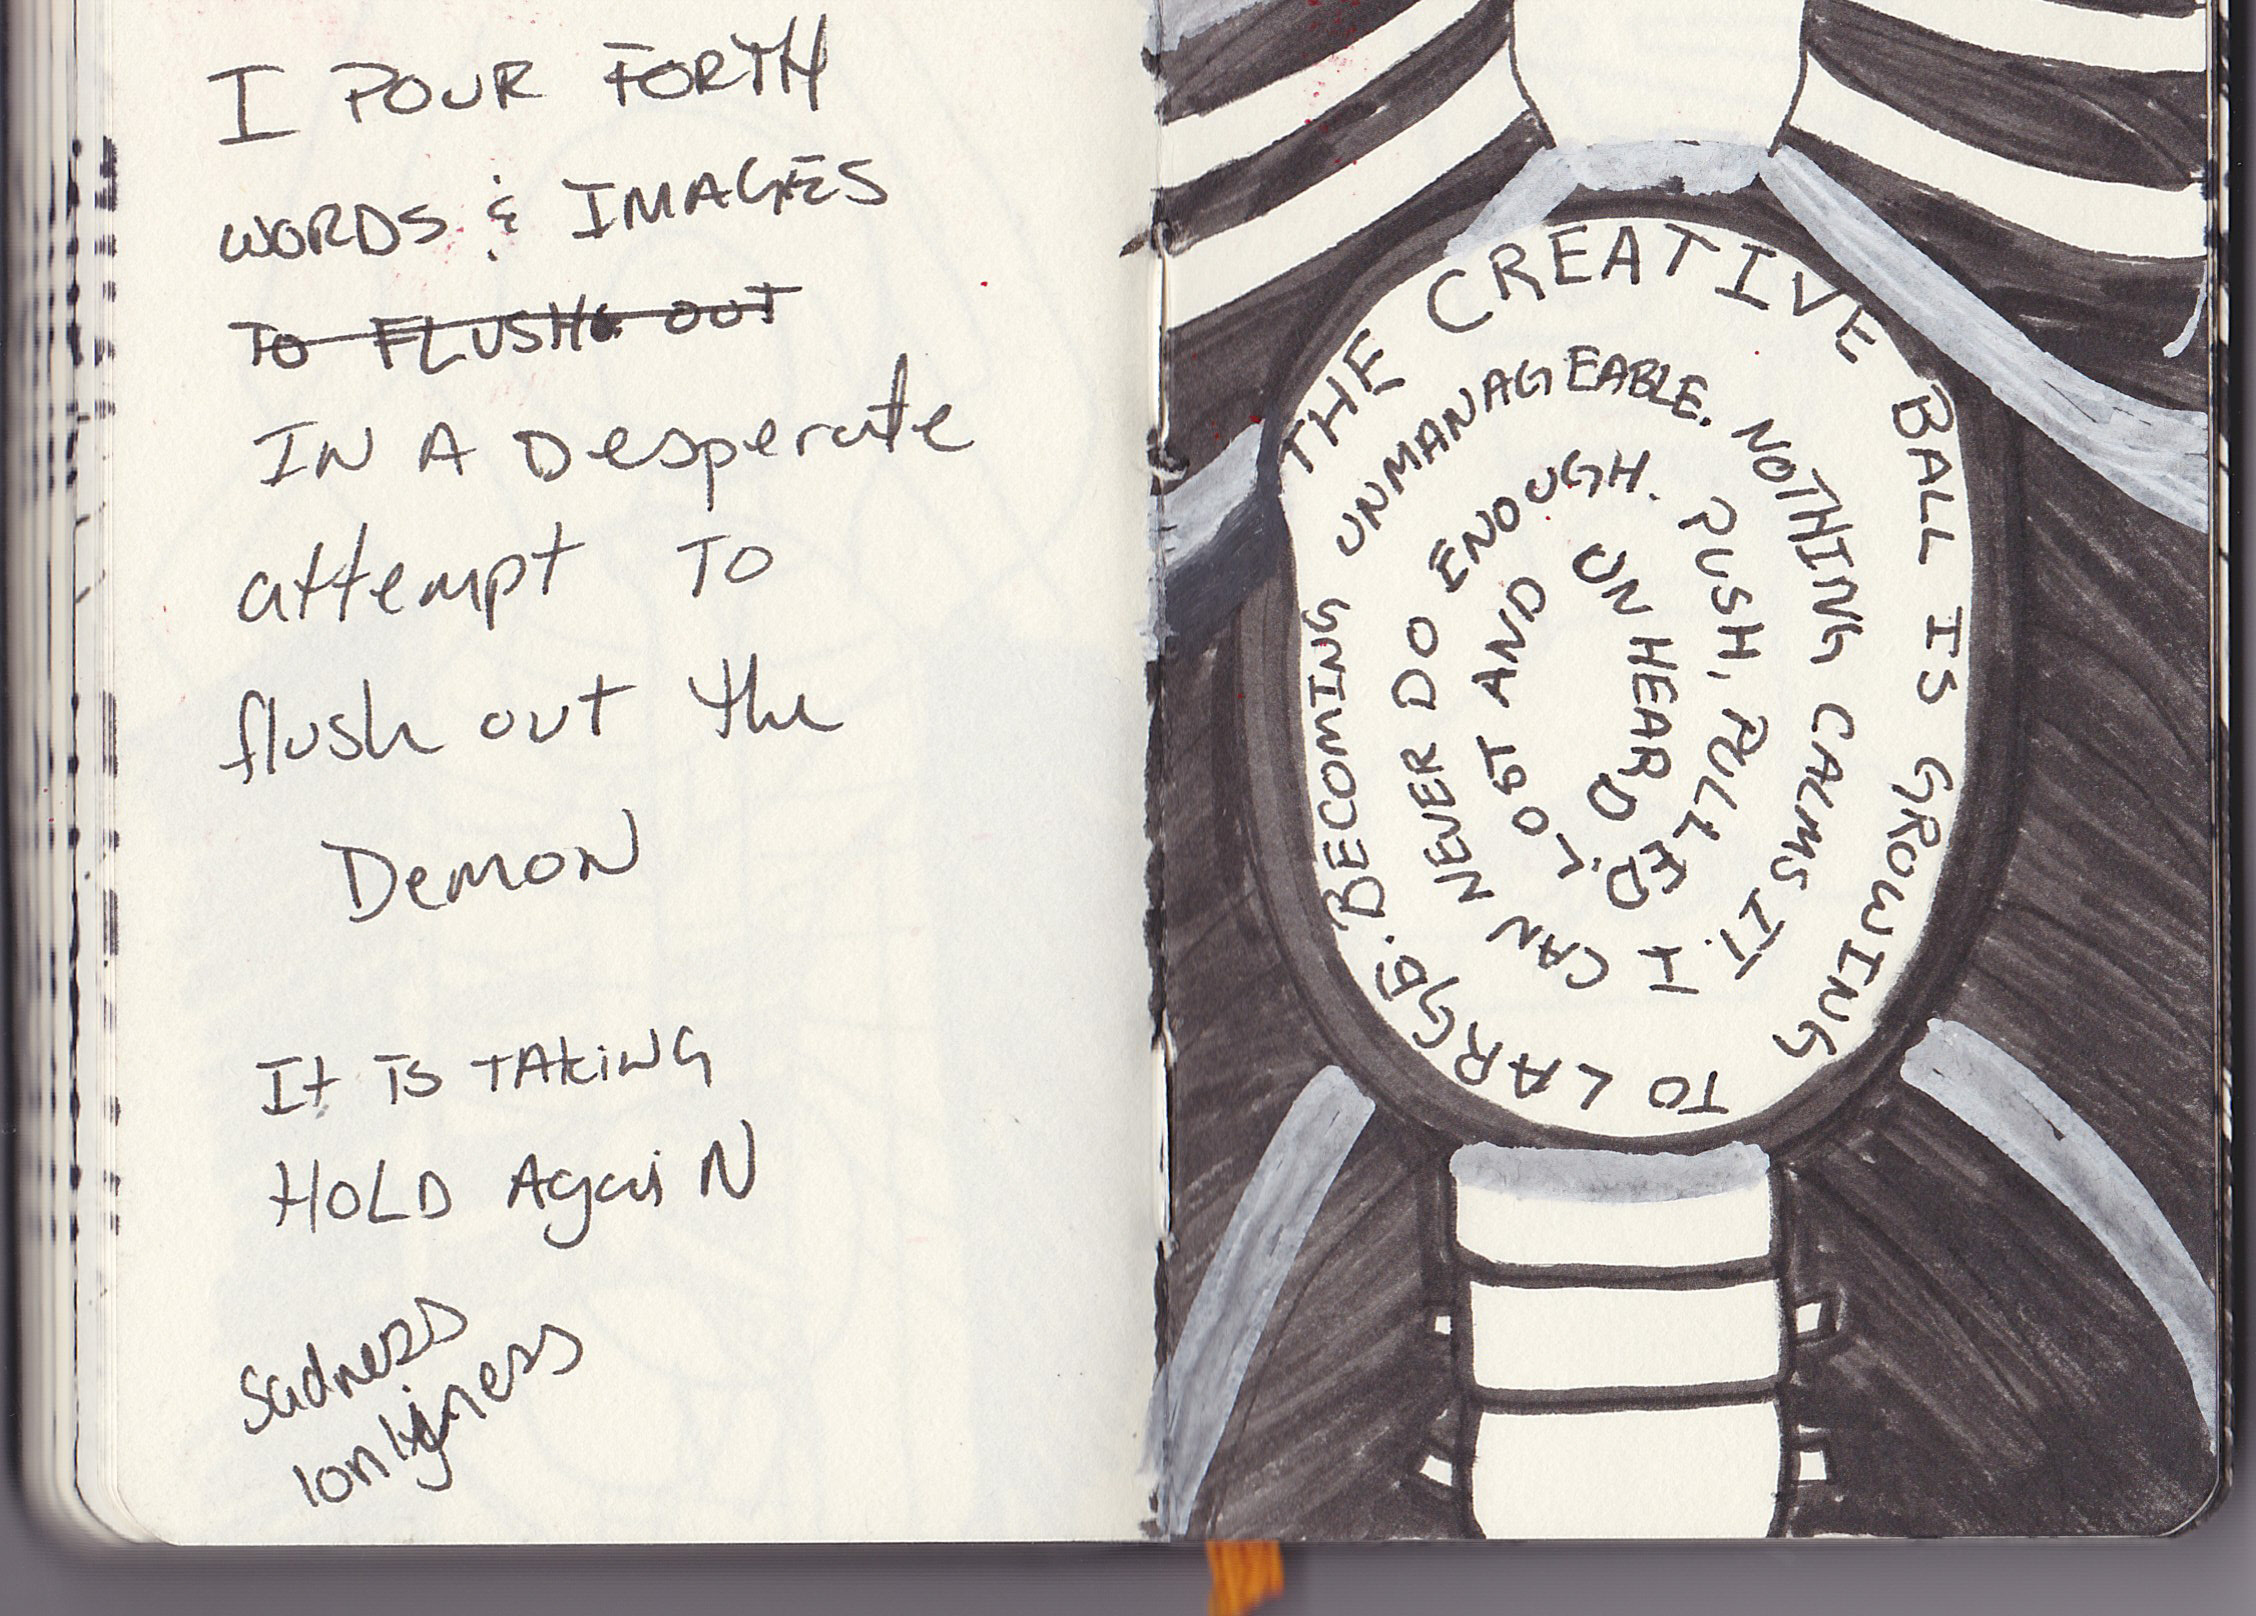 I POUR FORTH
WORDS & IMAGES
TO FLUSH OUT
IN A Desperate
attempt TO
flush out the
Demon
It Is TAKING
HOLD AgaiN
Sadness
lonlyness
THE CREATIVE BALL IS GROWING TO LARGE. BECOMING UNMANAGEABLE. NOTHING CALMS IT. I CAN NEVER DO ENOUGH. PUSH, PULLED, LOST AND UNHEARD